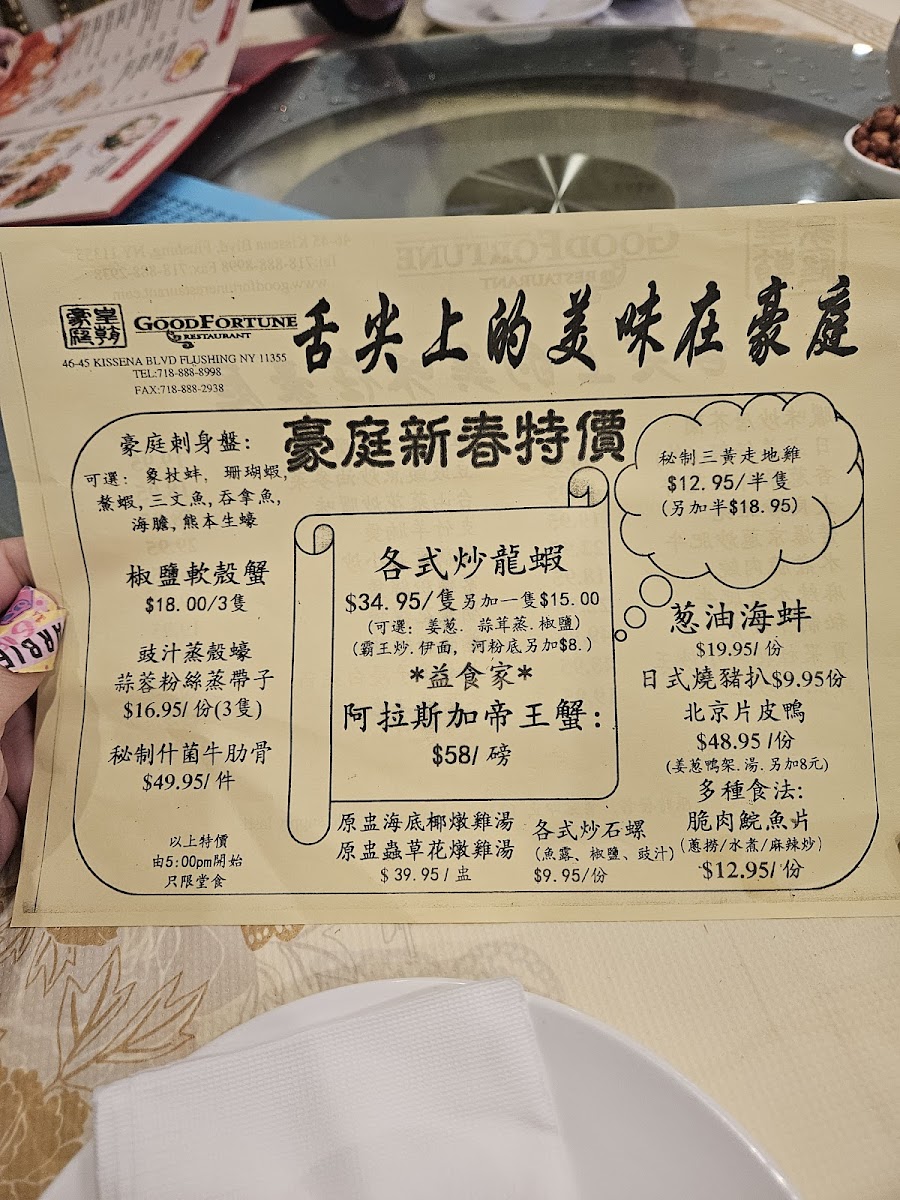 豪庭
皇朝
GOODFORTUNE
RESTAURANT
46-45 KISSENA BLVD FLUSHING NY 11355
TEL:718-888-8998
FAX:718-888-2938
舌尖上的美味在豪庭
豪庭新春特價
豪庭刺身盤:
可選: 象拔蚌, 珊瑚蝦,
鰲蝦, 三文魚, 吞拿魚,
海膽, 熊本生蠔
椒鹽軟殼蟹
$18.00/3隻
豉汁蒸殼蠔
蒜蓉粉絲蒸帶子
$16.95/ 份(3隻)
秘制什菌牛肋骨
$49.95/ 件
以上特價
由5:00pm開始
只限堂食
各式炒龍蝦
$34.95/隻另加一隻$15.00
(可選: 姜蔥. 蒜茸蒸. 椒鹽)
(霸王炒. 伊面, 河粉底另加$8.)
*益食家*
阿拉斯加帝王蟹:
$58/ 磅
原盅海底椰燉雞湯
原盅蟲草花燉雞湯
$ 39.95 / 盅
各式炒石螺
(魚露、椒鹽、豉汁)
$9.95/份
秘制三黃走地雞
$12.95/半隻
(另加半$18.95)
葱油海蚌
$19.95/ 份
日式燒豬扒$9.95份
北京片皮鴨
$48.95 /份
(姜葱鴨架. 湯. 另加8元)
多種食法:
脆肉鯇魚片
(蔥撈/水煮/麻辣炒)
$12.95/ 份